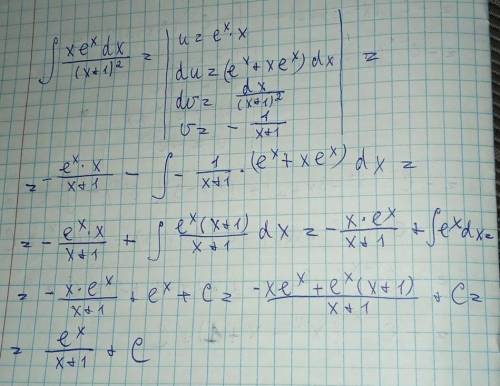 ∫ xeˣdx/(x+1)² = | u = eˣ·x
du = (eˣ + xeˣ)dx
dv = dx/(x+1)²
v = - 1/(x+1) | =
= - eˣ·x/(x+1) - ∫ - 1/(x+1) · (eˣ + xeˣ) dx =
= - eˣ·x/(x+1) + ∫ eˣ(x+1)/(x+1) dx = - x·eˣ/(x+1) + ∫eˣdx =
= - x·eˣ/(x+1) + eˣ + C = (-xeˣ + eˣ(x+1))/(x+1) + C =
= eˣ/(x+1) + C